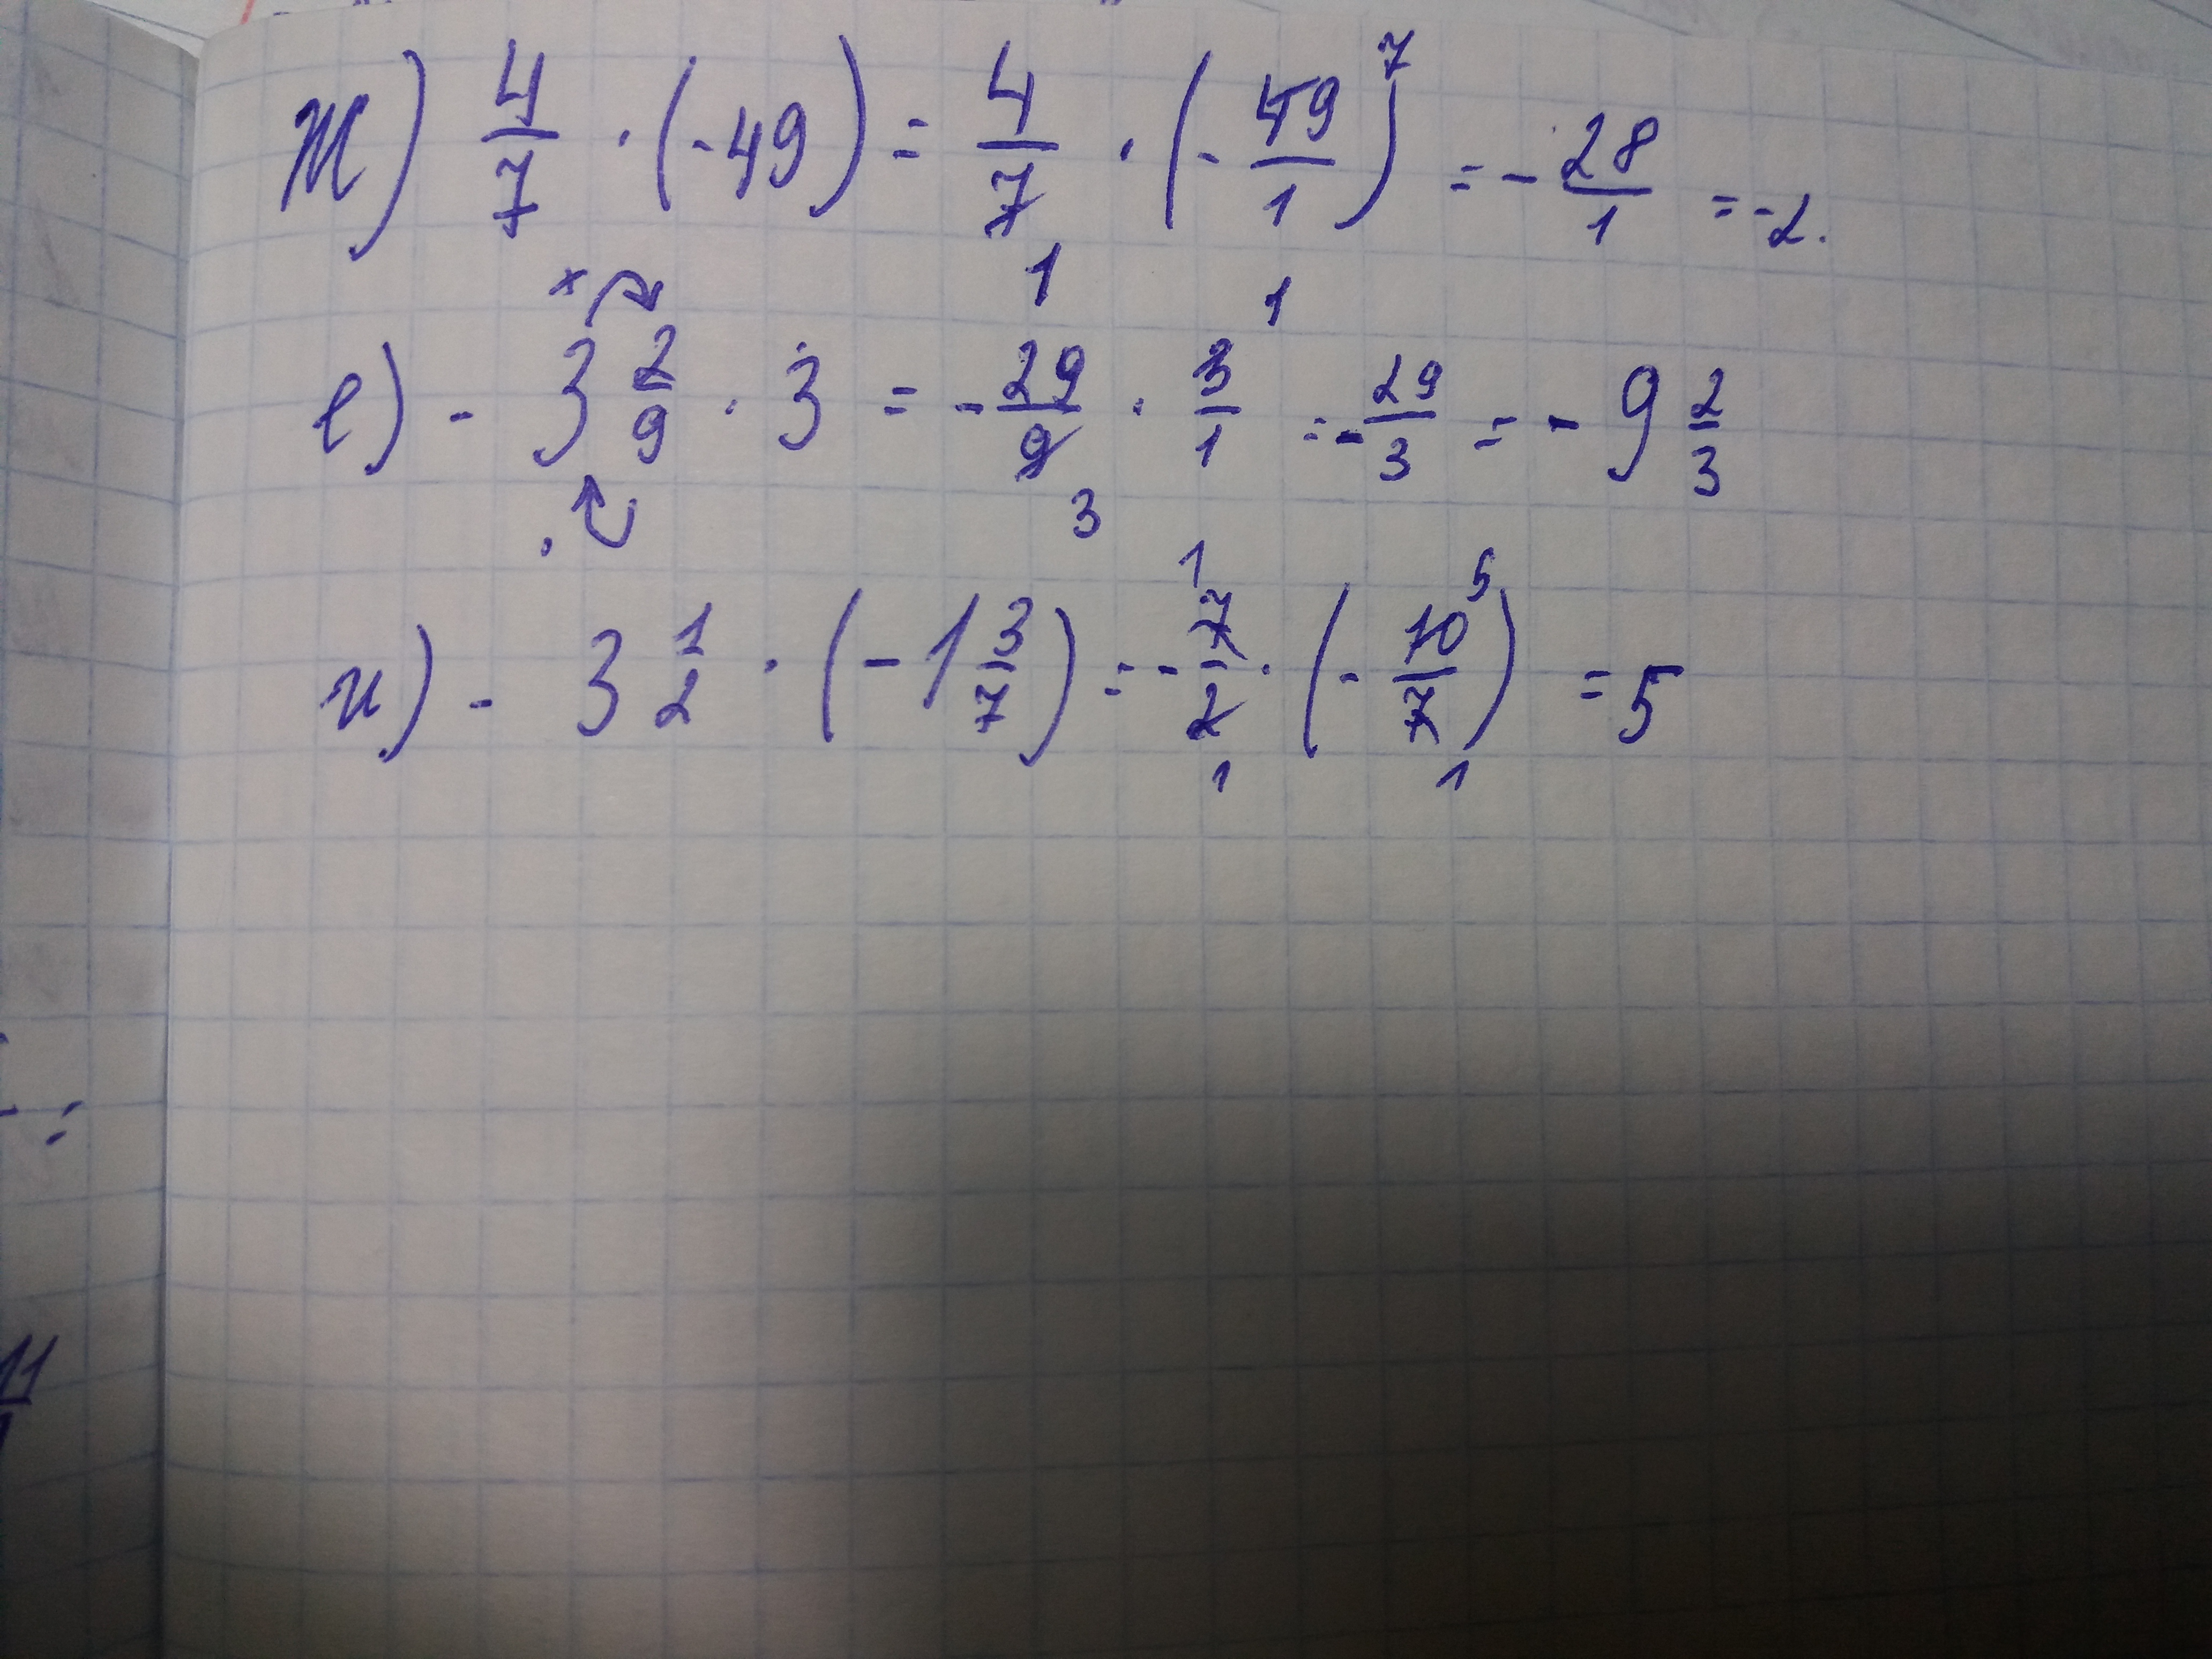 т) 4/7 · (-49) = 4/7 · (-49/1) = -28/1 = -2.
7
1
1
е) - 3 2/9 · 3 = - 29/9 · 3/1 = - 29/3 = - 9 2/3
3
1
5
и) - 3 1/2 · (-1 3/7) = - 7/2 · (- 10/7) = 5
1
1
=
11